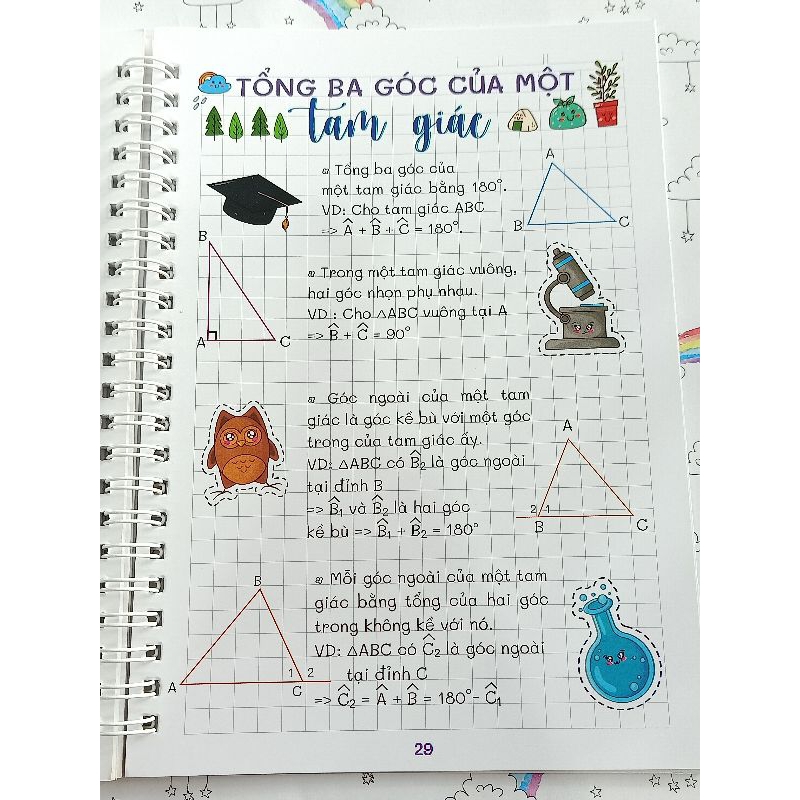 TỔNG BA GÓC CỦA MỘT
tam giác
Tổng ba góc của
một tam giác bằng 180°.
VD: Cho tam giác ABC
=> Â + B̂ + Ĉ = 180°.
A
B
C
B
A
C
Trong một tam giác vuông,
hai góc nhọn phụ nhau.
VD : Cho △ABC vuông tại A
=> B̂ + Ĉ = 90°
Góc ngoài của một tam
giác là góc kề bù với một góc
trong của tam giác ấy.
VD: △ABC có B̂₂ là góc ngoài
tại đỉnh B
=> B̂₁ và B̂₂ là hai góc
kề bù => B̂₁ + B̂₂ = 180°
A
2 1
B
C
B
A
1 2
C
Mỗi góc ngoài của một tam
giác bằng tổng của hai góc
trong không kề với nó.
VD: △ABC có Ĉ₂ là góc ngoài
tại đỉnh C
=> Ĉ₂ = Â + B̂ = 180° - Ĉ₁
29